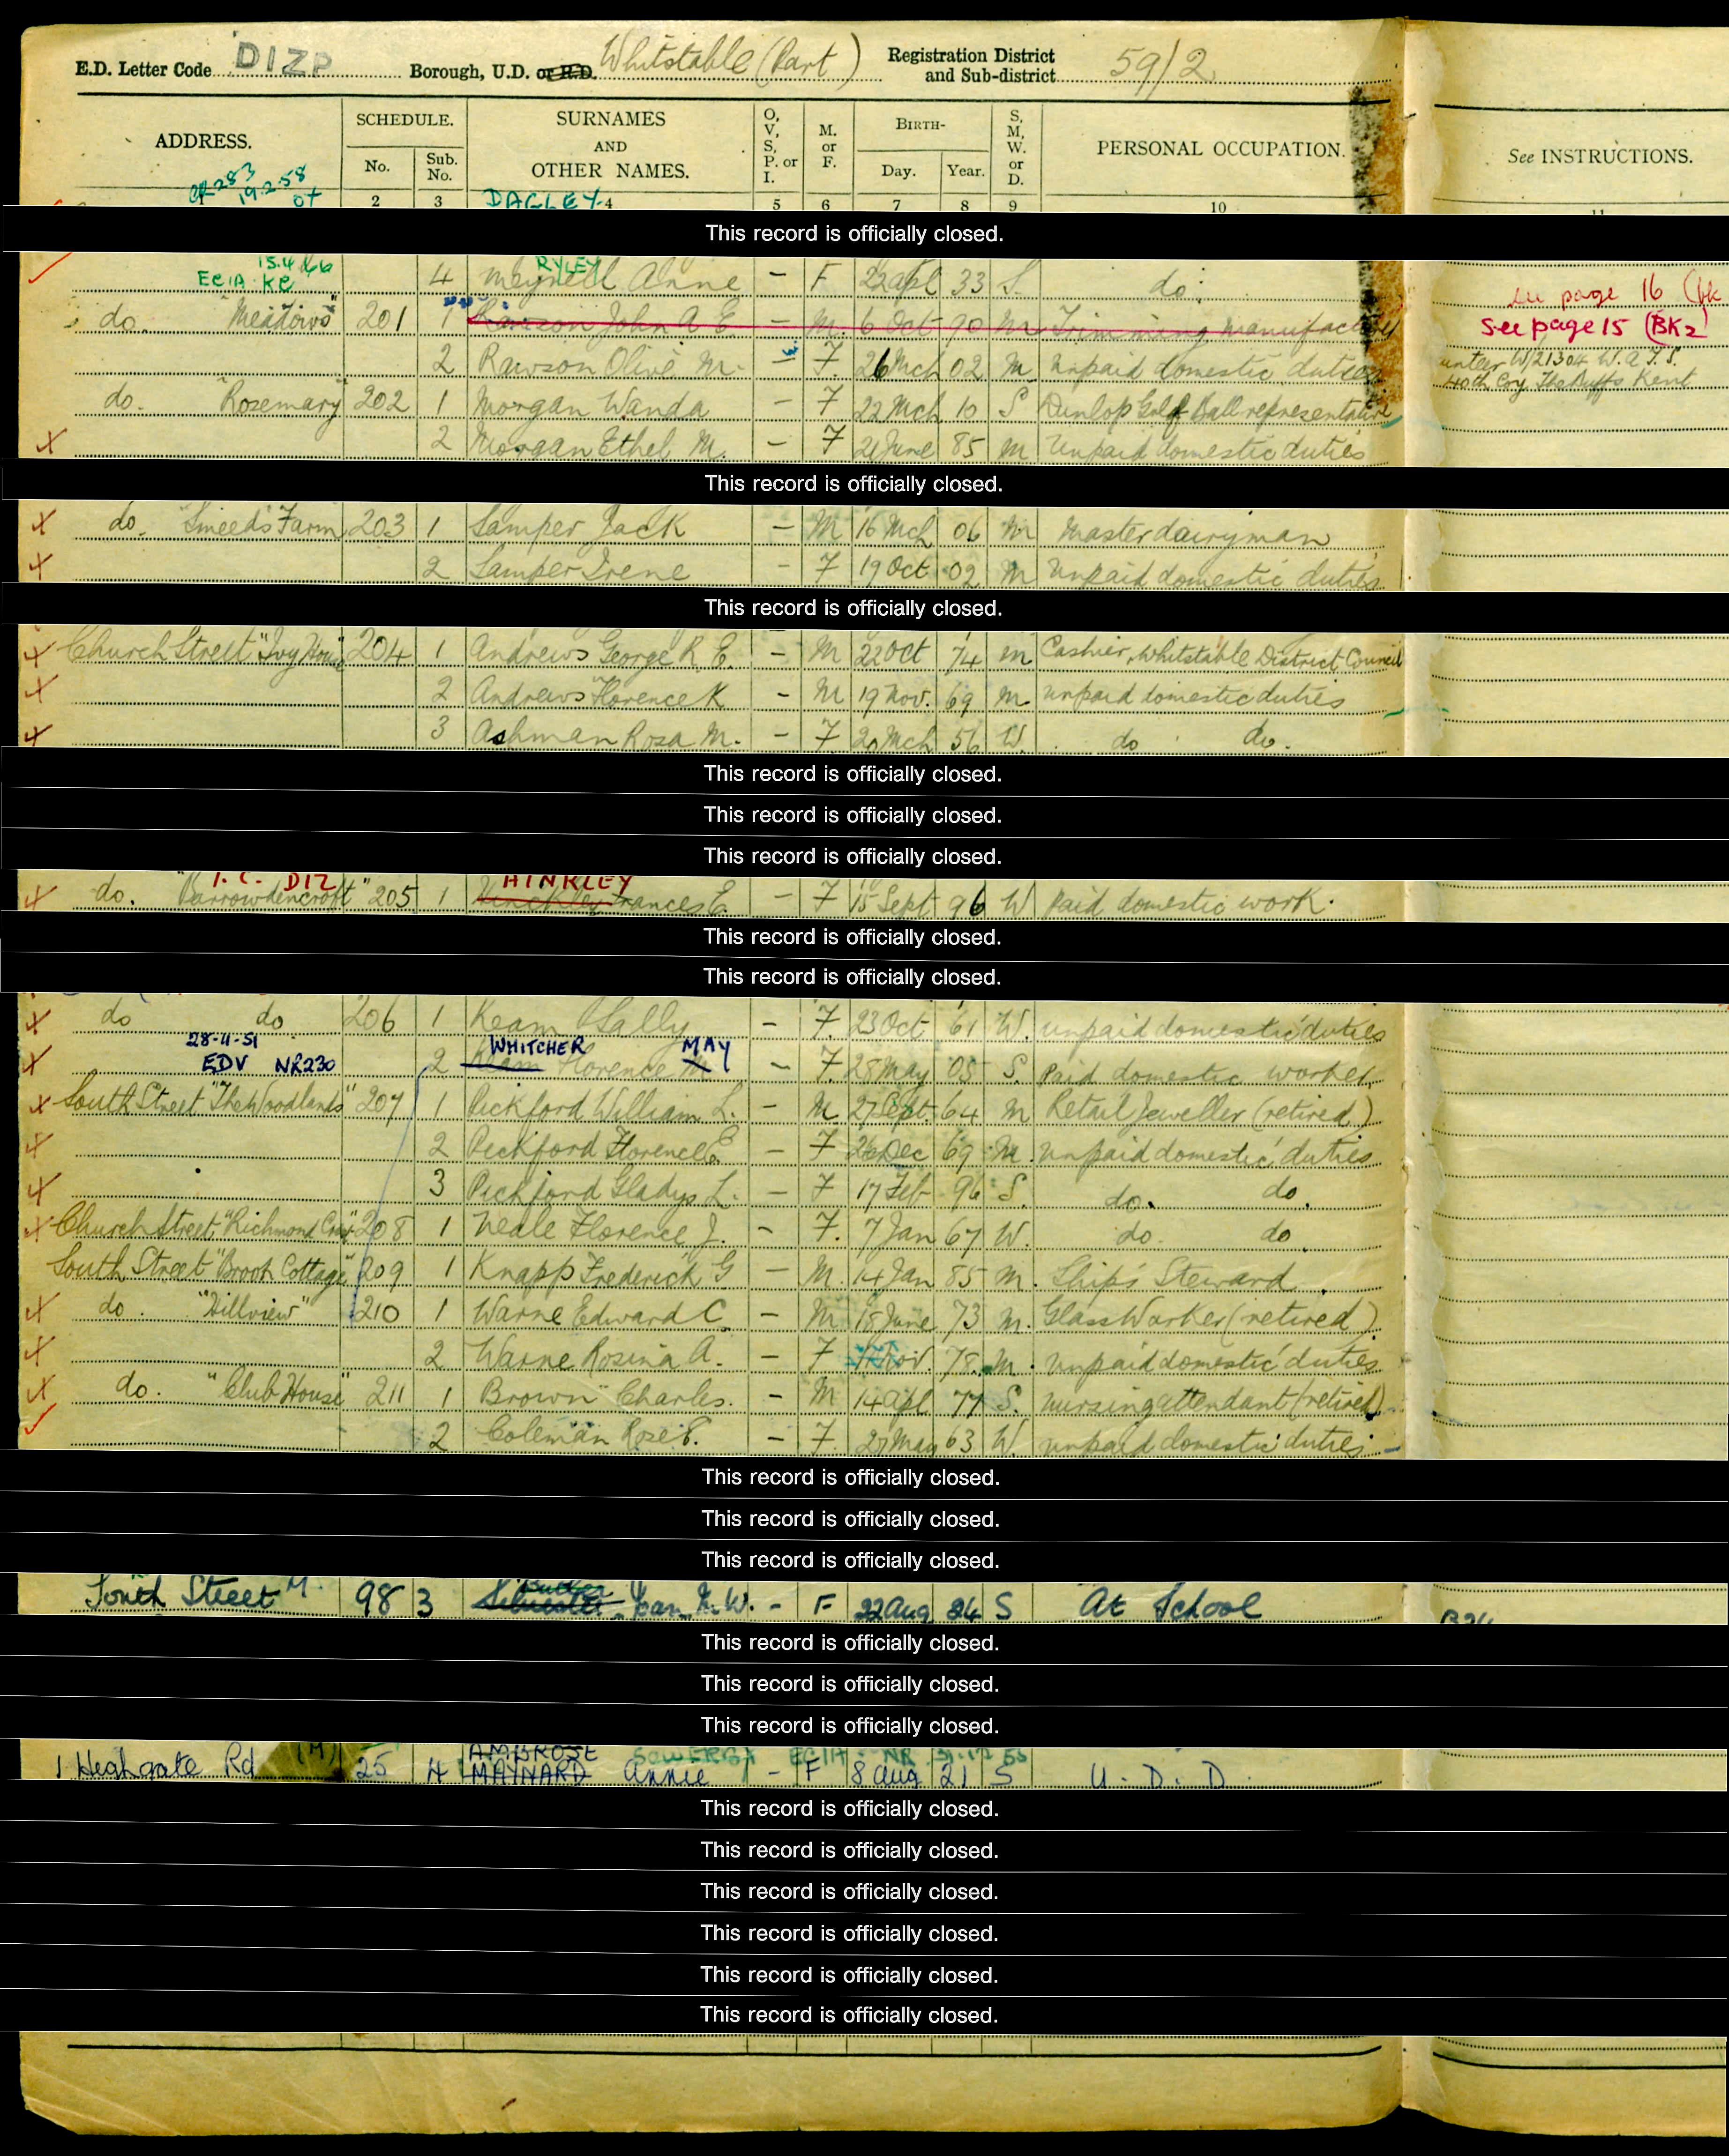 E.D. Letter Code DIZP Borough, U.D. or R.D. Whitstable (Part) Registration District and Sub-district 59/2
ADDRESS. SCHEDULE. No. Sub. No. SURNAMES AND OTHER NAMES. O, V, S, P. or I. M. or F. BIRTH- Day. Year. S, M, W. or D. PERSONAL OCCUPATION. See INSTRUCTIONS.
19.2.58
2 3 DAGLEY 4 5 6 7 8 9 10 11
This record is officially closed.
15.4.66 RYLEY
4 Meynell Anne – F 22 Apl 33 S. do.
see page 16 (bk
do. "Meadows" 201 1 Rawson John A E – M. 6 Oct 90 M Trimming Manufacturer See page 15 (BK2
2 Rawson Olive M. – F. 26 Mch 02 M unpaid domestic duties W/21304 W.A.T.S.
40th Coy. The Buffs Kent
do. "Rosemary" 202 1 Morgan Wanda – F 22 Mch 10 S Dunlop Golf Ball representative
2 Morgan Ethel M. – F 21 June 85 M Unpaid domestic duties
This record is officially closed.
do. "Smeeds Farm 203 1 Samper Jack – M 16 Mch 06 M Master dairyman
2 Samper Irene – F 19 Oct 02 M Unpaid domestic duties
This record is officially closed.
Church Street "Ivy House" 204 1 Andrews George R. E. – M 22 Oct 74 M Cashier, Whitstable District Council
2 Andrews Florence K – M 19 Nov. 69 M. unpaid domestic duties
3 Ashman Rosa M. – F. 20 Mch 56 W. do do.
This record is officially closed.
This record is officially closed.
This record is officially closed.
DIZ HINKLEY
do. "Barrowdencroft" 205 1 Hinckley Frances E. – F 15 Sept 96 W Paid domestic work.
This record is officially closed.
This record is officially closed.
do do 206 1 Keam Sally – F. 23 Oct 61 W. unpaid domestic duties
28-11-51 WHITCHER MAY
EDV NR230 2 Keam Florence M. – F. 28 May 05 S. Paid domestic worker
South Street "The Woodlands" 207 1 Pickford William L. – M 27 Sept 64 M Retail Jeweller (retired)
2 Pickford Florence E – F 26 Dec 69 M. unpaid domestic duties
3 Pickford Gladys L. – F 17 Feb 96 S. do. do.
Church Street "Richmond 208 1 Neale Florence J. – F. 7 Jan 67 W. do. do.
South Street "Brook Cottage" 209 1 Knapp Frederick G – M. 14 Jan 85 M. Ship's Steward
do. "Hillview" 210 1 Warne Edward C. – M 18 June 73 M. Glass Worker (retired)
2 Warne Rosina A. – F Nov. 78 M. Unpaid domestic duties
do. "Club House" 211 1 Brown Charles. – M 14 Apl 77 S. nursing attendant (retired)
2 Coleman Rose E. – F. 27 May 63 W. unpaid domestic duties
This record is officially closed.
This record is officially closed.
This record is officially closed.
Butler
South Street M. 98 3 Silvester Jean M. W. – F 22 Aug 24 S At School
This record is officially closed.
This record is officially closed.
This record is officially closed.
AMBROSE SOWERBY
1 Heathgate Rd (M) 25 4 MAYNARD Annie – F 8 Aug 21 S U. D. D.
This record is officially closed.
This record is officially closed.
This record is officially closed.
This record is officially closed.
This record is officially closed.
This record is officially closed.